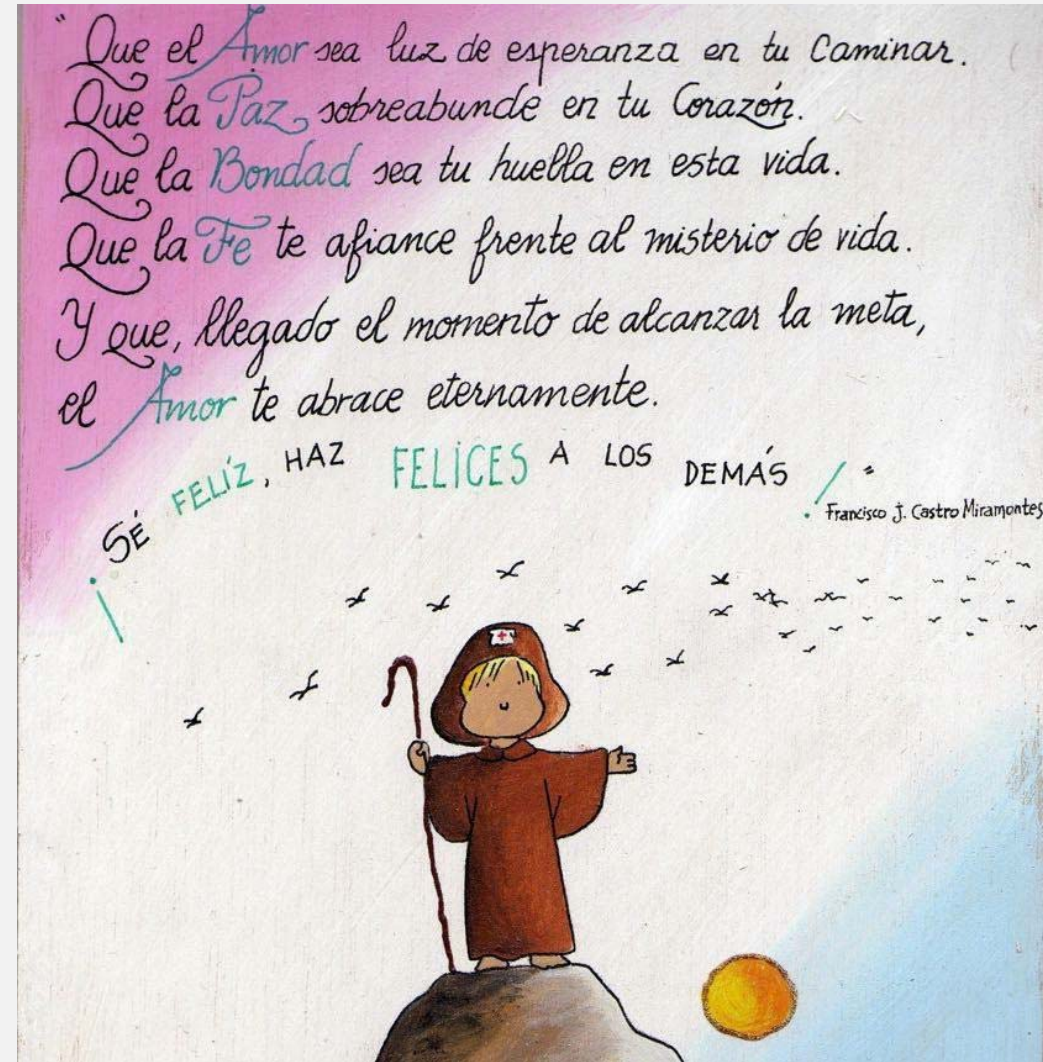 " Que el Amor sea luz de esperanza en tu Caminar.
Que la Paz sobreabunde en tu Corazón.
Que la Bondad sea tu huella en esta vida.
Que la Fe te afiance frente al misterio de vida.
Y que, llegado el momento de alcanzar la meta,
el Amor te abrace eternamente.
¡SÉ FELÍZ, HAZ FELICES A LOS DEMÁS! "
Francisco J. Castro Miramontes